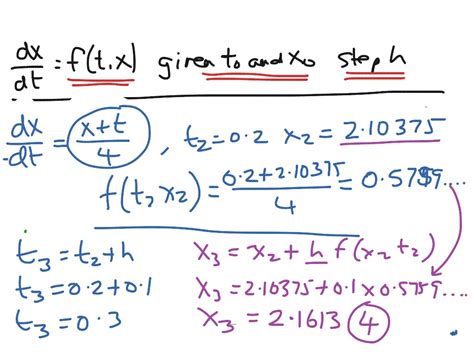 dx/dt = f(t,x) given t₀ and x₀ step h
dx/dt = (x+t)/4 , t₂=0.2 x₂ = 2.10375
f(t₂x₂) = (0.2+2.10375)/4 = 0.5759....
t₃=t₂+h
t₃=0.2+0.1
t₃=0.3
x₃ = x₂ + h f(x₂t₂)
x₃=2.10375+0.1x0.5759....
x₃ = 2.1613(4)